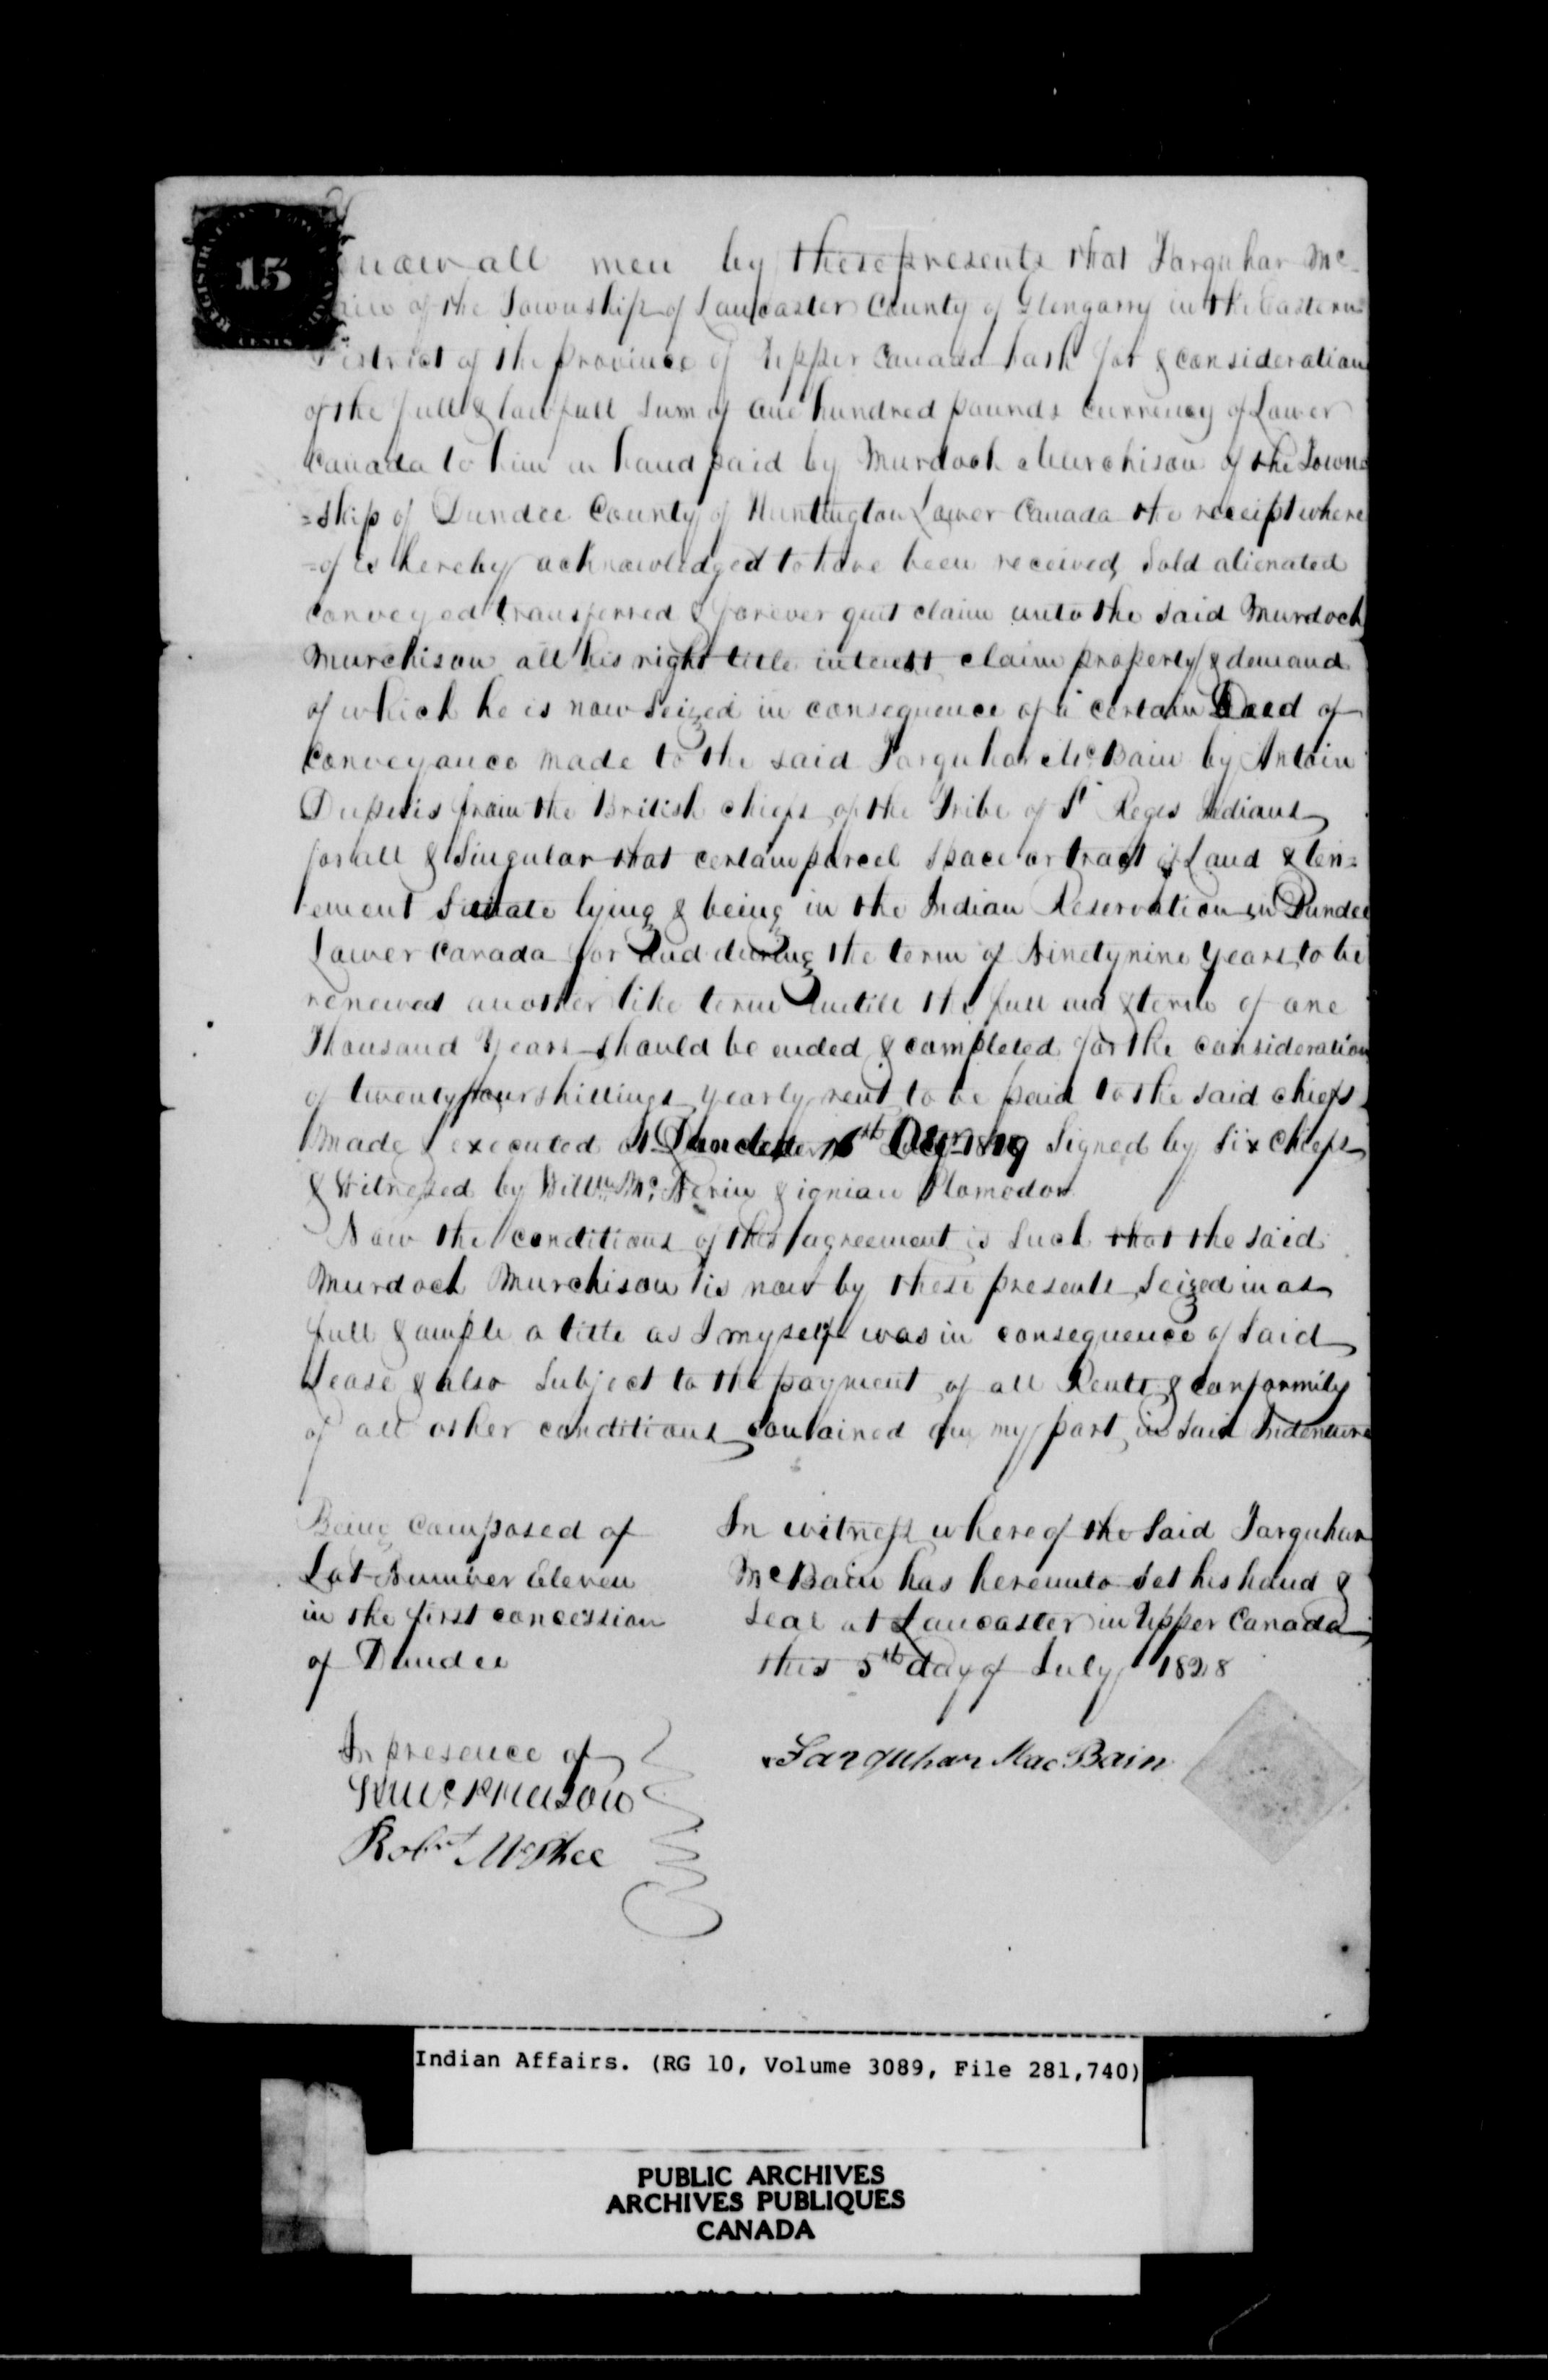 15
CENTS
Know all men by these presents that Farquhar Mc
Bain of the Township of Lancaster County of Glengarry in the Eastern
District of the province of Upper Canada hath for & consideration
of the full & lawfull Sum of one hundred pounds Currency of Lower
Canada to him in hand paid by Murdoch Murchison of the Town
=ship of Dundee County of Huntington Lower Canada the receipt where
=of is hereby acknowledged to have been received, Sold alienated
conveyed transferred & forever quit claim unto the said Murdoch
Murchison all his right title interest claim property & demand
of which he is now Seized in consequence of a certain Deed of
Conveyance made to the said Farquhar McBain by Antoin
from the British chiefs of the Tribe of St Regis Indians
for all & Singular that certain parcel space or tract of Land & ten=
ement Situate lying & being in the Indian Reservation in Dundee
Lower Canada for and during the term of Ninetynine Years to be
renewed another like term untill the full and & term of one
Thousand Years should be ended & completed for the consideration
of twentyfour shillings yearly rent to be paid to the said chiefs
made & executed at 16th 1819 Signed by Six Chiefs
& Witnessed by Willm Mc &
Now the conditions of this agreement is Such that the said
Murdoch Murchison is now by these presents Seized in as
full & ample a title as I myself was in consequence of Said
Lease & also Subject to the payment of all Rents & conformity
of all other conditions contained on my part in said Indenture
Being Composed of
Lot Number Eleven
in the first concession
of Dundee
In witness whereof the Said Farquhar
McBain has hereunto Set his hand &
Seal at Lancaster in Upper Canada
this 5th day of July 1828
In presence of
Robt McPhee
Farquhar MacBain
Indian Affairs. (RG 10, Volume 3089, File 281,740)
PUBLIC ARCHIVES
ARCHIVES PUBLIQUES
CANADA